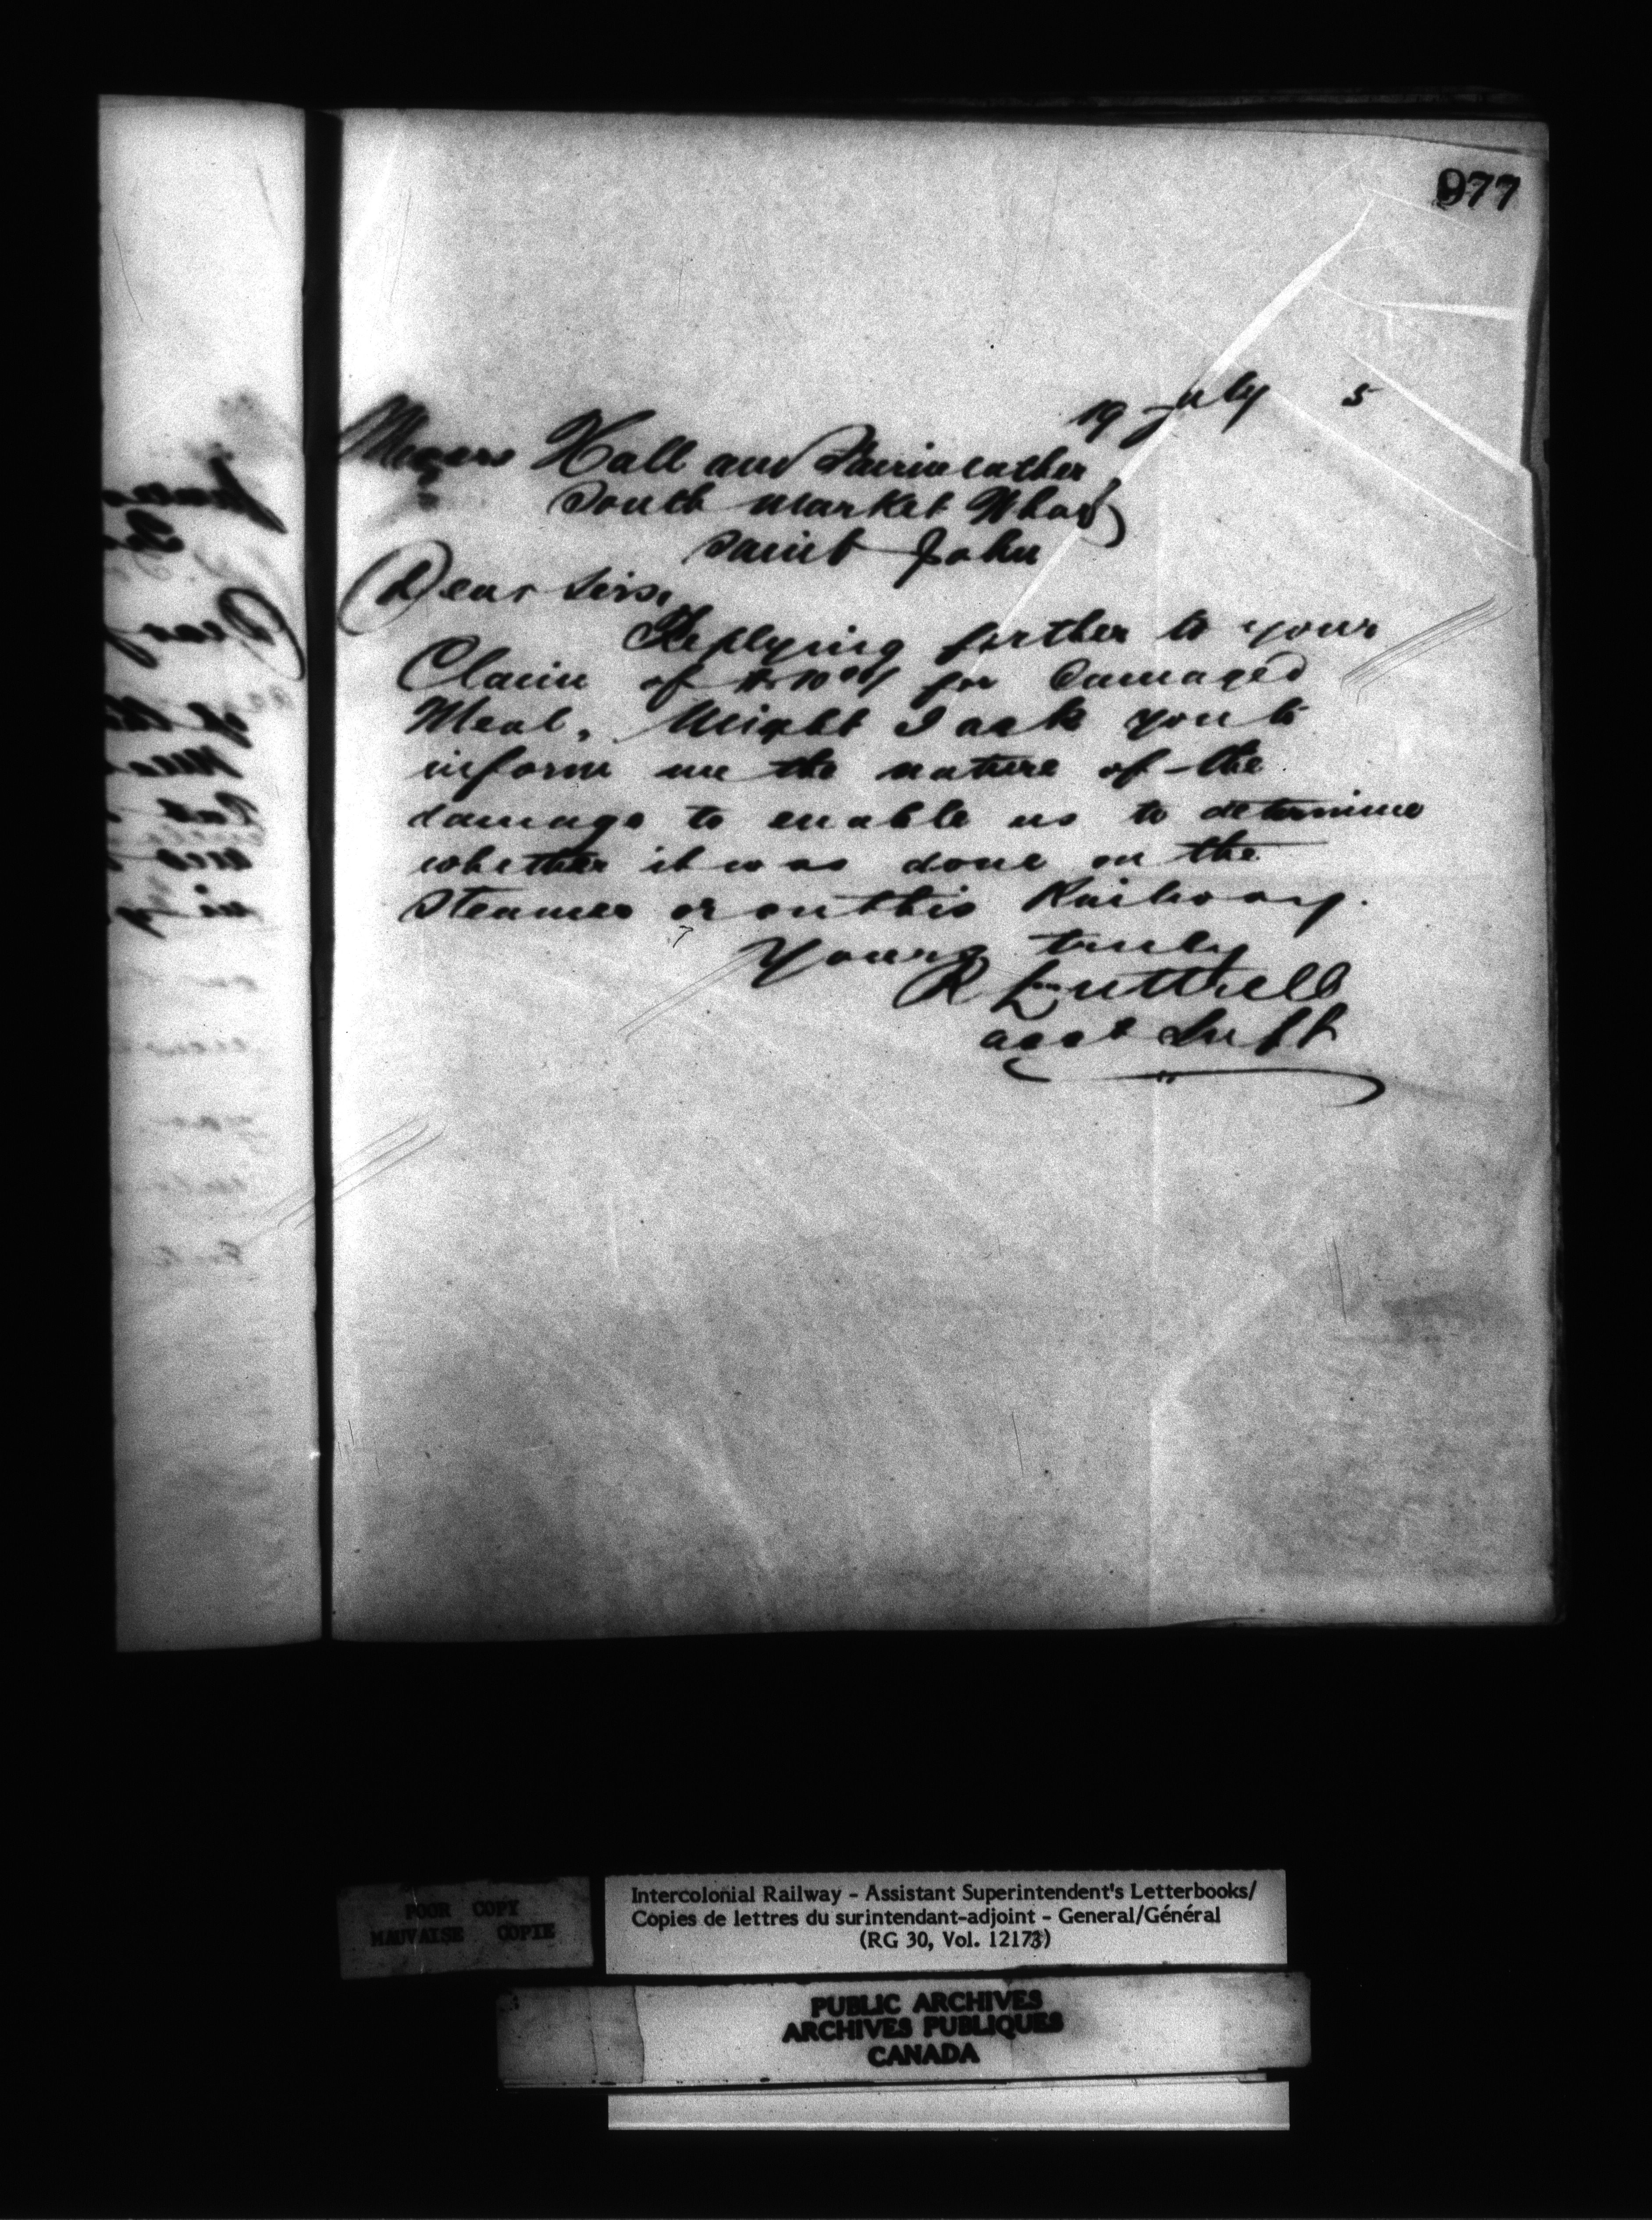 977
19 July 5
Messrs Hall and Fairweather
South Market Wharf
Saint John
Dear Sirs,
Replying further to your
Claim of for Damaged
Meal, Might I ask you to
inform me the nature of the
damage to enable us to determine
whether it was done on the
Steamer or on this Railway.
Yours truly
R Luttrell
asst Supt
POOR COPY
MAUVAISE COPIE
Intercolonial Railway - Assistant Superintendent's Letterbooks/
Copies de lettres du surintendant-adjoint - General/Général
(RG 30, Vol. 12173)
PUBLIC ARCHIVES
ARCHIVES PUBLIQUES
CANADA